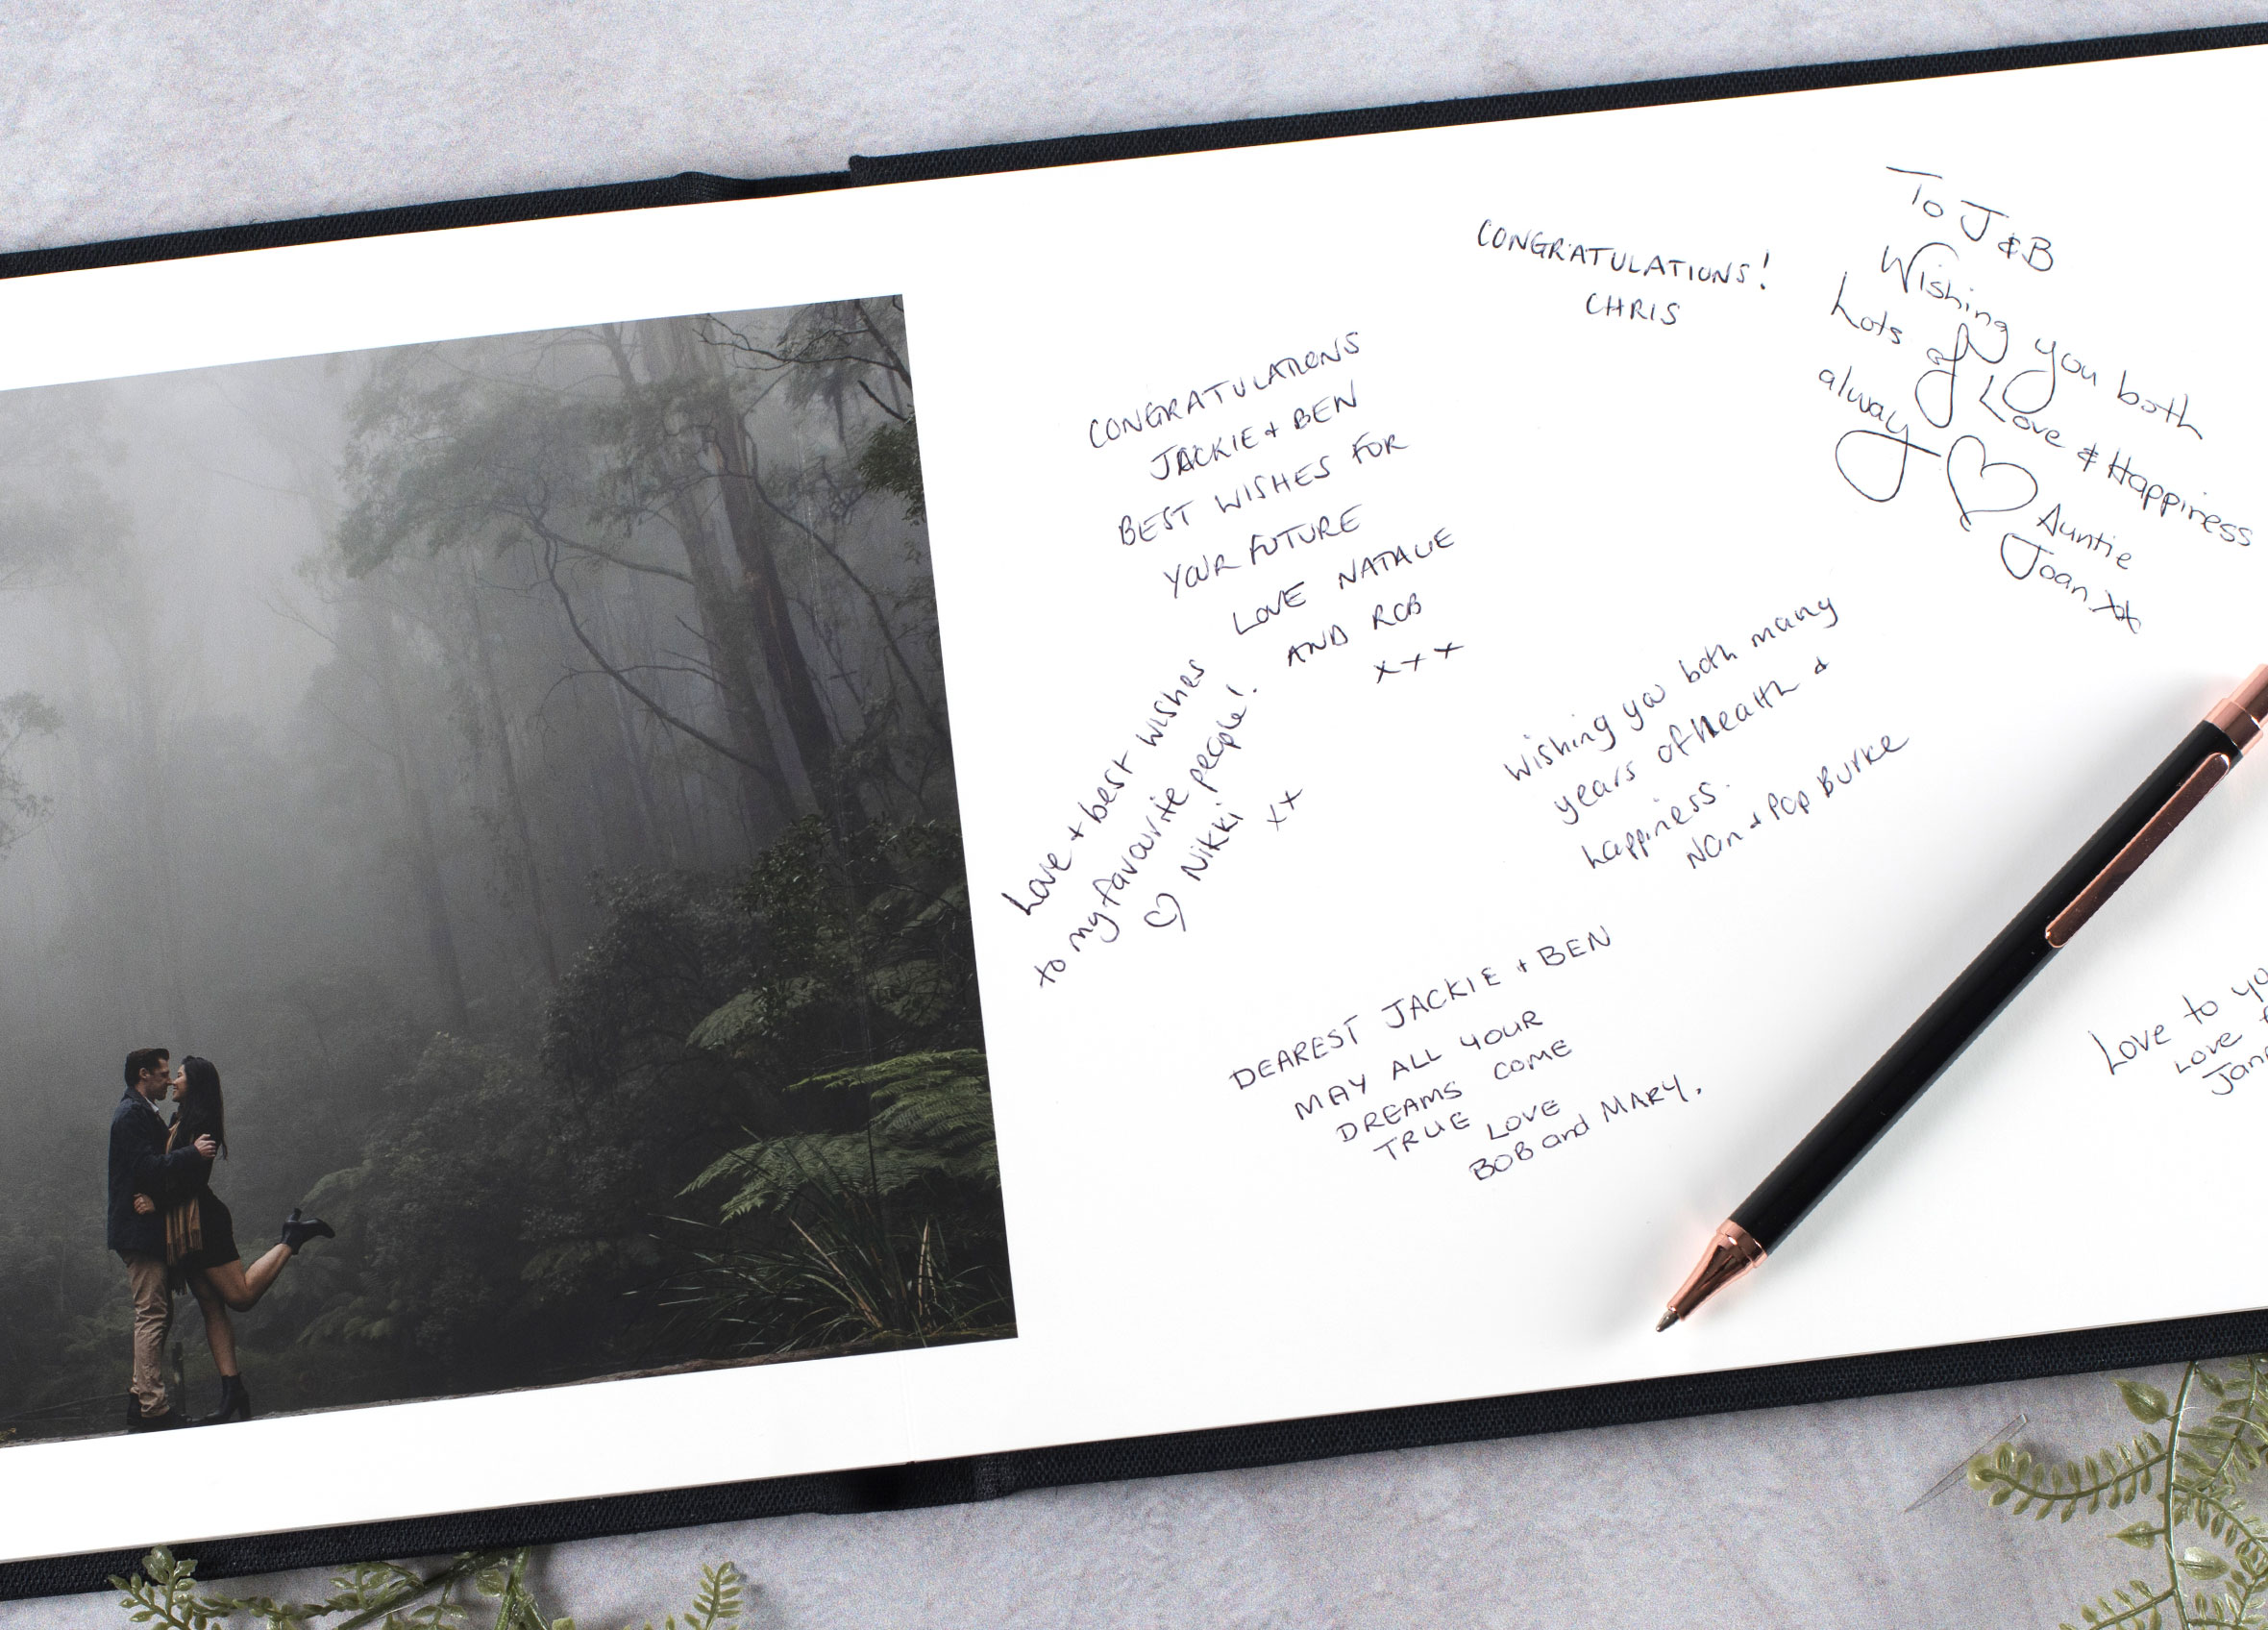 CONGRATULATIONS
JACKIE + BEN
BEST WISHES FOR
YOUR FUTURE
LOVE NATALIE
AND ROB
x + x
CONGRATULATIONS!
CHRIS
To J & B
Wishing you both
Lots of Love & Happiness
always
Auntie
Joan xx
Love + best wishes
to my favourite people!
♡ Nikki xx
Wishing you both many
years of health &
happiness.
Nan + Pop Burke
DEAREST JACKIE + BEN
MAY ALL YOUR
DREAMS COME
TRUE LOVE
BOB and MARY.
Love to
Love